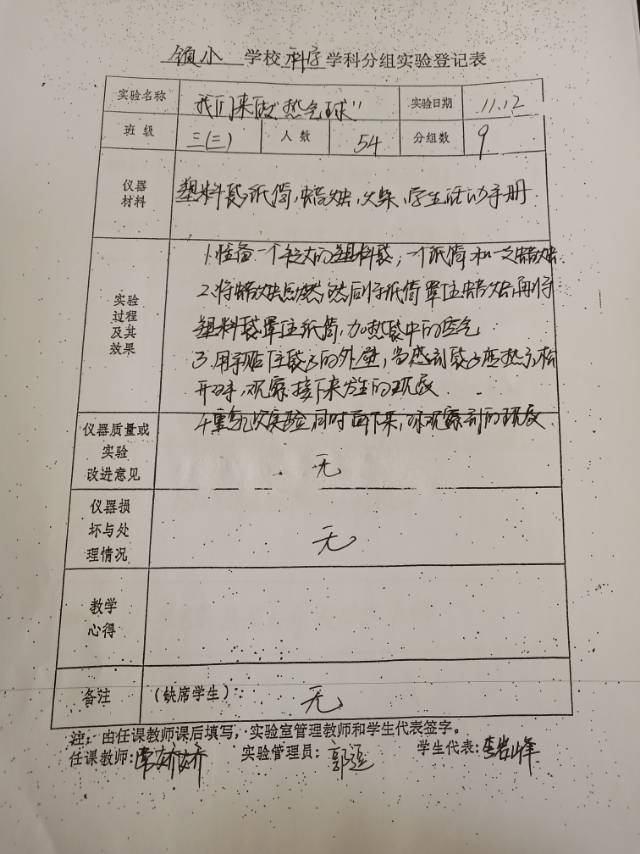 镇小 学校 科学 学科分组实验登记表
实验名称 我们来做"热气球" 实验日期 11.12
班 级 三(三) 人 数 54 分组数 9
仪器
材料
塑料袋,纸筒,蜡烛,火柴,学生活动手册
实验
过程
及其
效果
1.准备一个较大的塑料袋,一个纸筒和一支蜡烛
2.将蜡烛点燃,然后将纸筒罩住蜡烛,再将
塑料袋罩住纸筒,加热袋中的空气
3.用手贴住袋子的外壁,当感到袋子变热后松
开双手,观察接下来发生的现象
4.重复几次实验,同时画下来,观察到的现象
仪器质量或
实验
改进意见
无
仪器损
坏与处
理情况
无
教学
心得
备注
(缺席学生):
无
注:由任课教师课后填写,实验室管理教师和学生代表签字。
任课教师:常娇娇 实验管理员:郭 学生代表:李岩峰